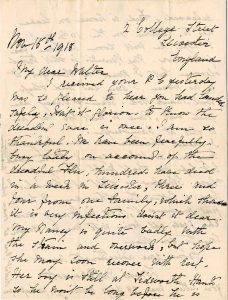 2 College Street
Leicester
England
Nov 18th 1918
My dear Walter
I received your P.C. yesterday
was so pleased to hear you had landed
safely, Isn't it glorious to know the
dreadful war is once, I am so
thankful. We have been
busy lately on account of the
dreadful Flu, hundreds have died
in a week in Leicester, three and
four from one family, which shows
it is very infectious doesn't it dear.
is quite badly with
the strain and overwork, but hope
she may soon recover with rest.
Her boy is still at Tidworth, thank
so he won't be long before he is